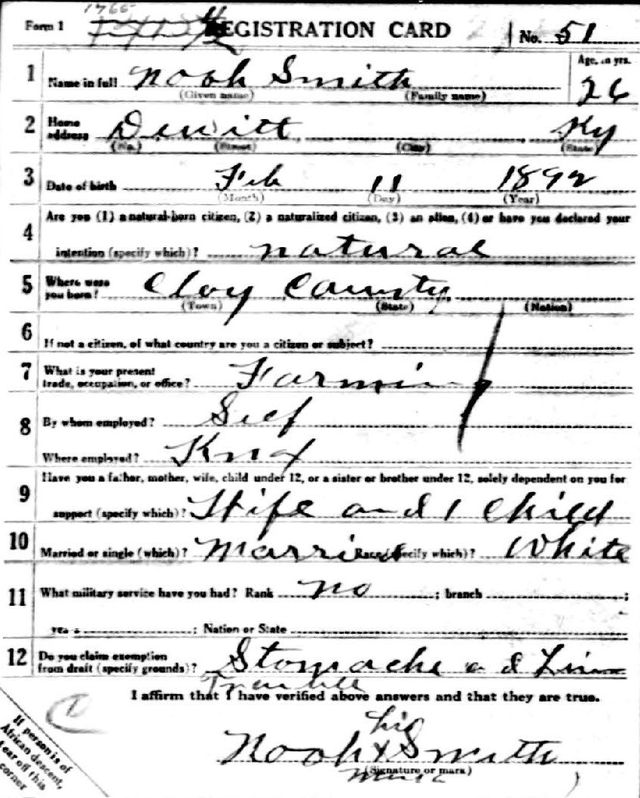 1766
Form 1 REGISTRATION CARD No. 51
1 Name in full Noah Smith Age, in yrs. 26
(Given name) (Family name)
2 Home address Dewitt Ky
(No.) (Street) (City) (State)
3 Date of birth Feb 11 1892
(Month) (Day) (Year)
Are you (1) a natural-born citizen, (2) a naturalized citizen, (3) an alien, (4) or have you declared your
4 intention (specify which)? natural
5 Where were you born? Clay County
(Town) (State) (Nation)
6 If not a citizen, of what country are you a citizen or subject?
7 What is your present trade, occupation, or office? Farming
8 By whom employed? Self
Where employed? Knox
Have you a father, mother, wife, child under 12, or a sister or brother under 12, solely dependent on you for
9 support (specify which)? Wife and 1 child
10 Married or single (which)? Married Race (specify which)? White
11 What military service have you had? Rank no ; branch ;
years ; Nation or State
12 Do you claim exemption from draft (specify grounds)? Stomache and
Trouble
I affirm that I have verified above answers and that they are true.
his
Noah x Smith
(Signature or mark)
mark
If person is of
African descent,
tear off this
corner